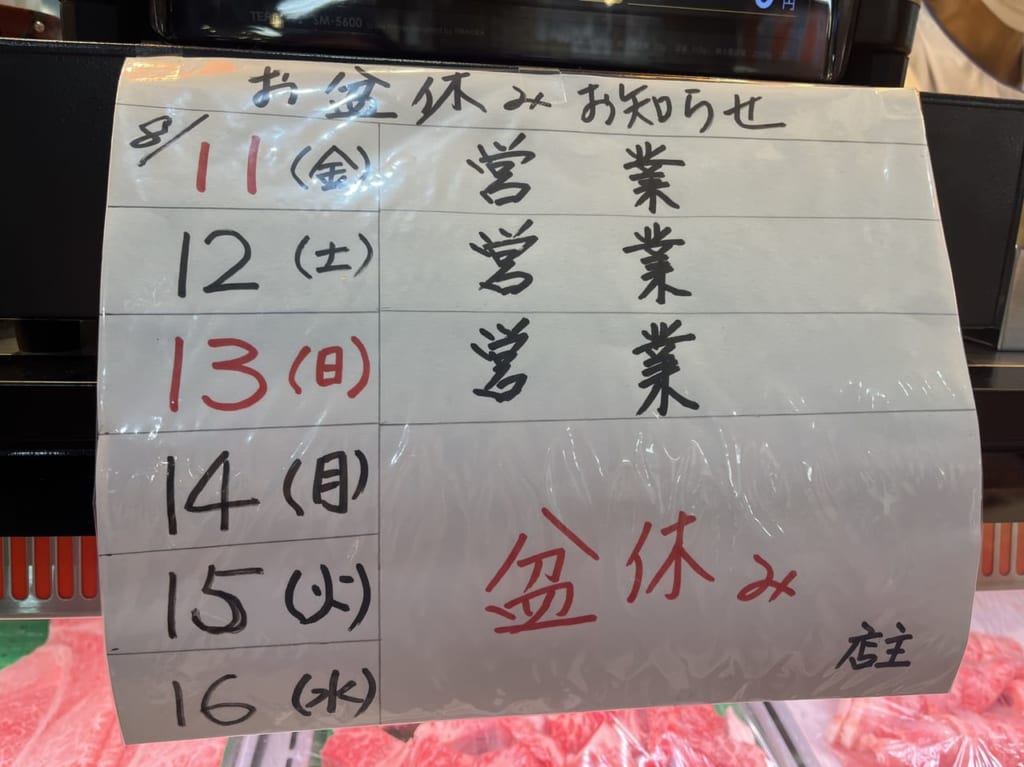 SM-5600
円
お盆休みお知らせ
8/11(金) 営業
12(土) 営業
13(日) 営業
14(月)
15(火)
盆休み
店主
16(水)